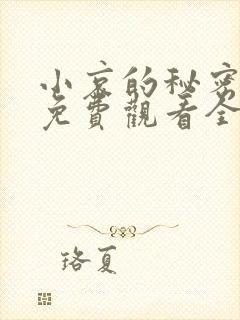 小哀的秘密
免費觀看全
珞夏